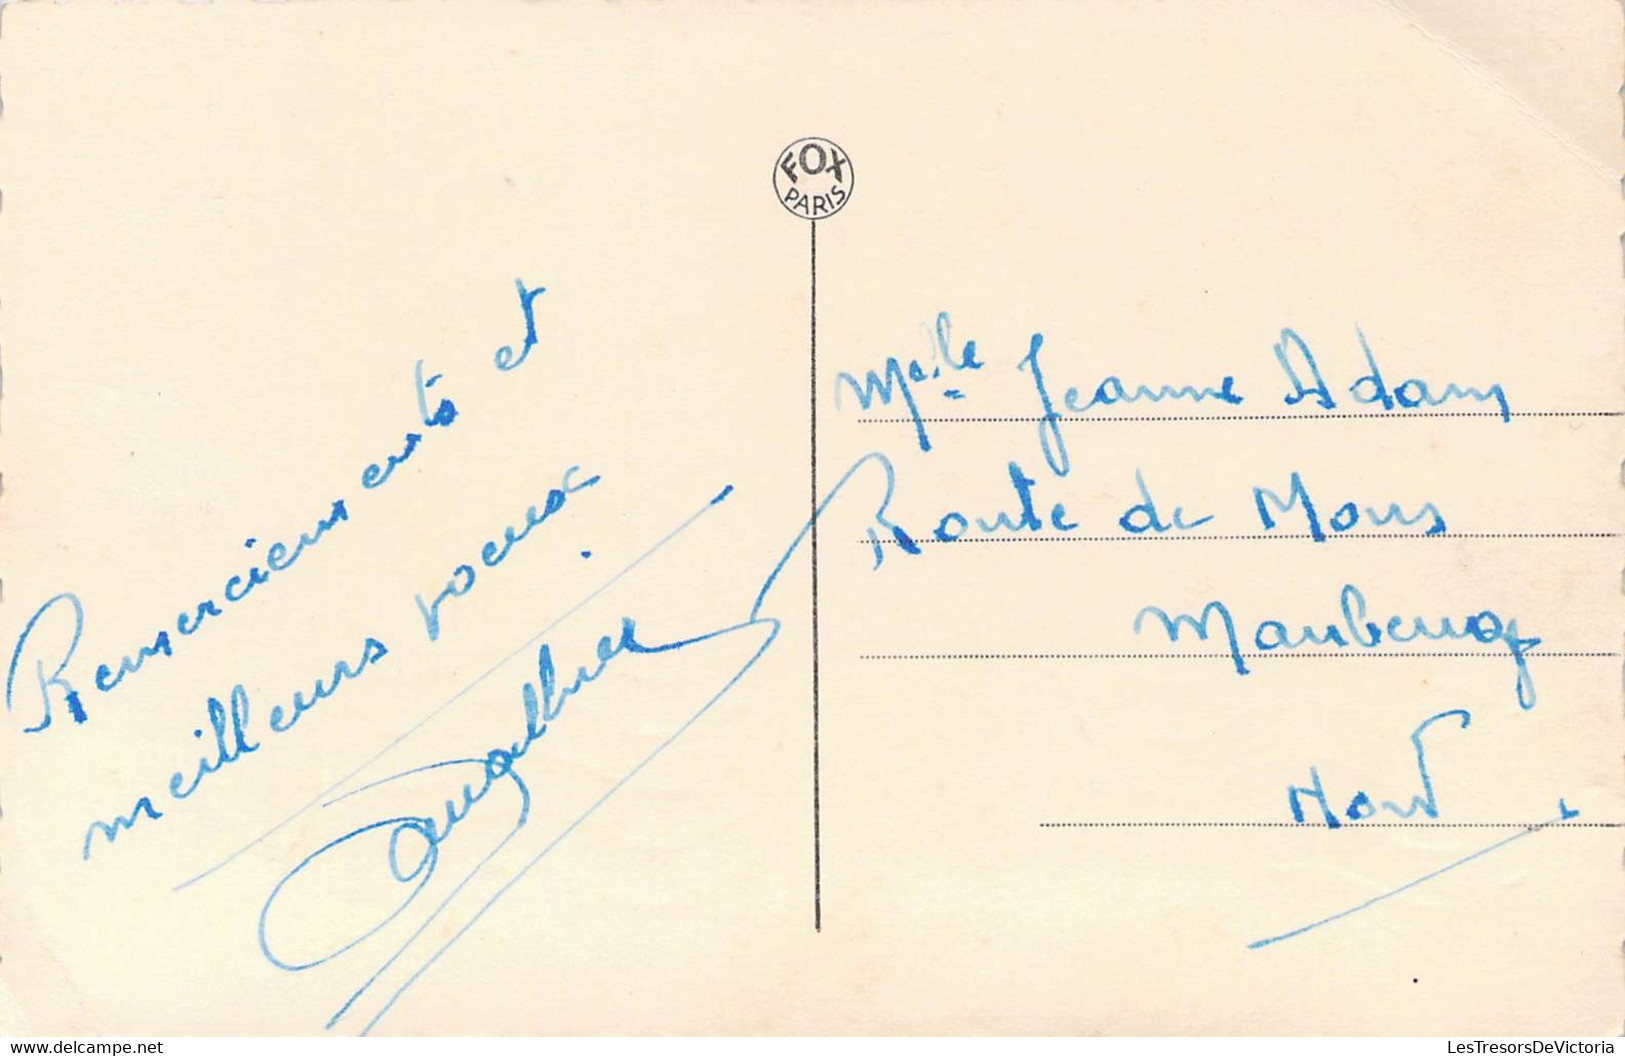 FOX
PARIS
Remerciements et
meilleurs voeux
Melle Jeanne Adam
Route de Mons
Maubeuge
Nord
www.delcampe.net
LesTresorsDeVictoria